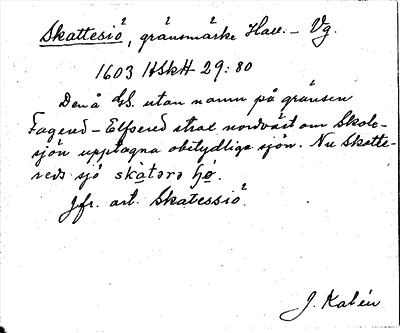 Skattesiö, gränsmärke Hall. – Vg.
1603 HSkH 29:80
Den å GS. utan namn på gränsen
Fagered – Elfsered strax nordväst om Skole-
sjön upptagna obetydliga sjön. Nu Skatte-
reds sjö skàtərə ʃø̀.
Jfr. art. Skatessiö.
J. Kalén